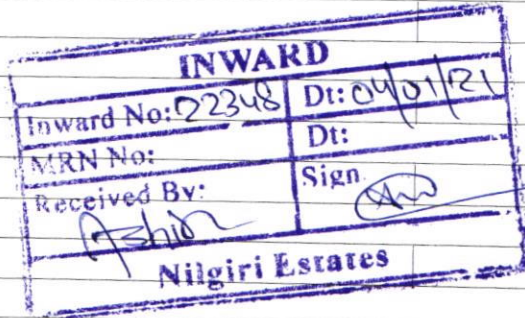 INWARD
Inward No: 22348 Dt: 04/01/21
MRN No: Dt:
Received By: Sign
Ashish
Nilgiri Estates